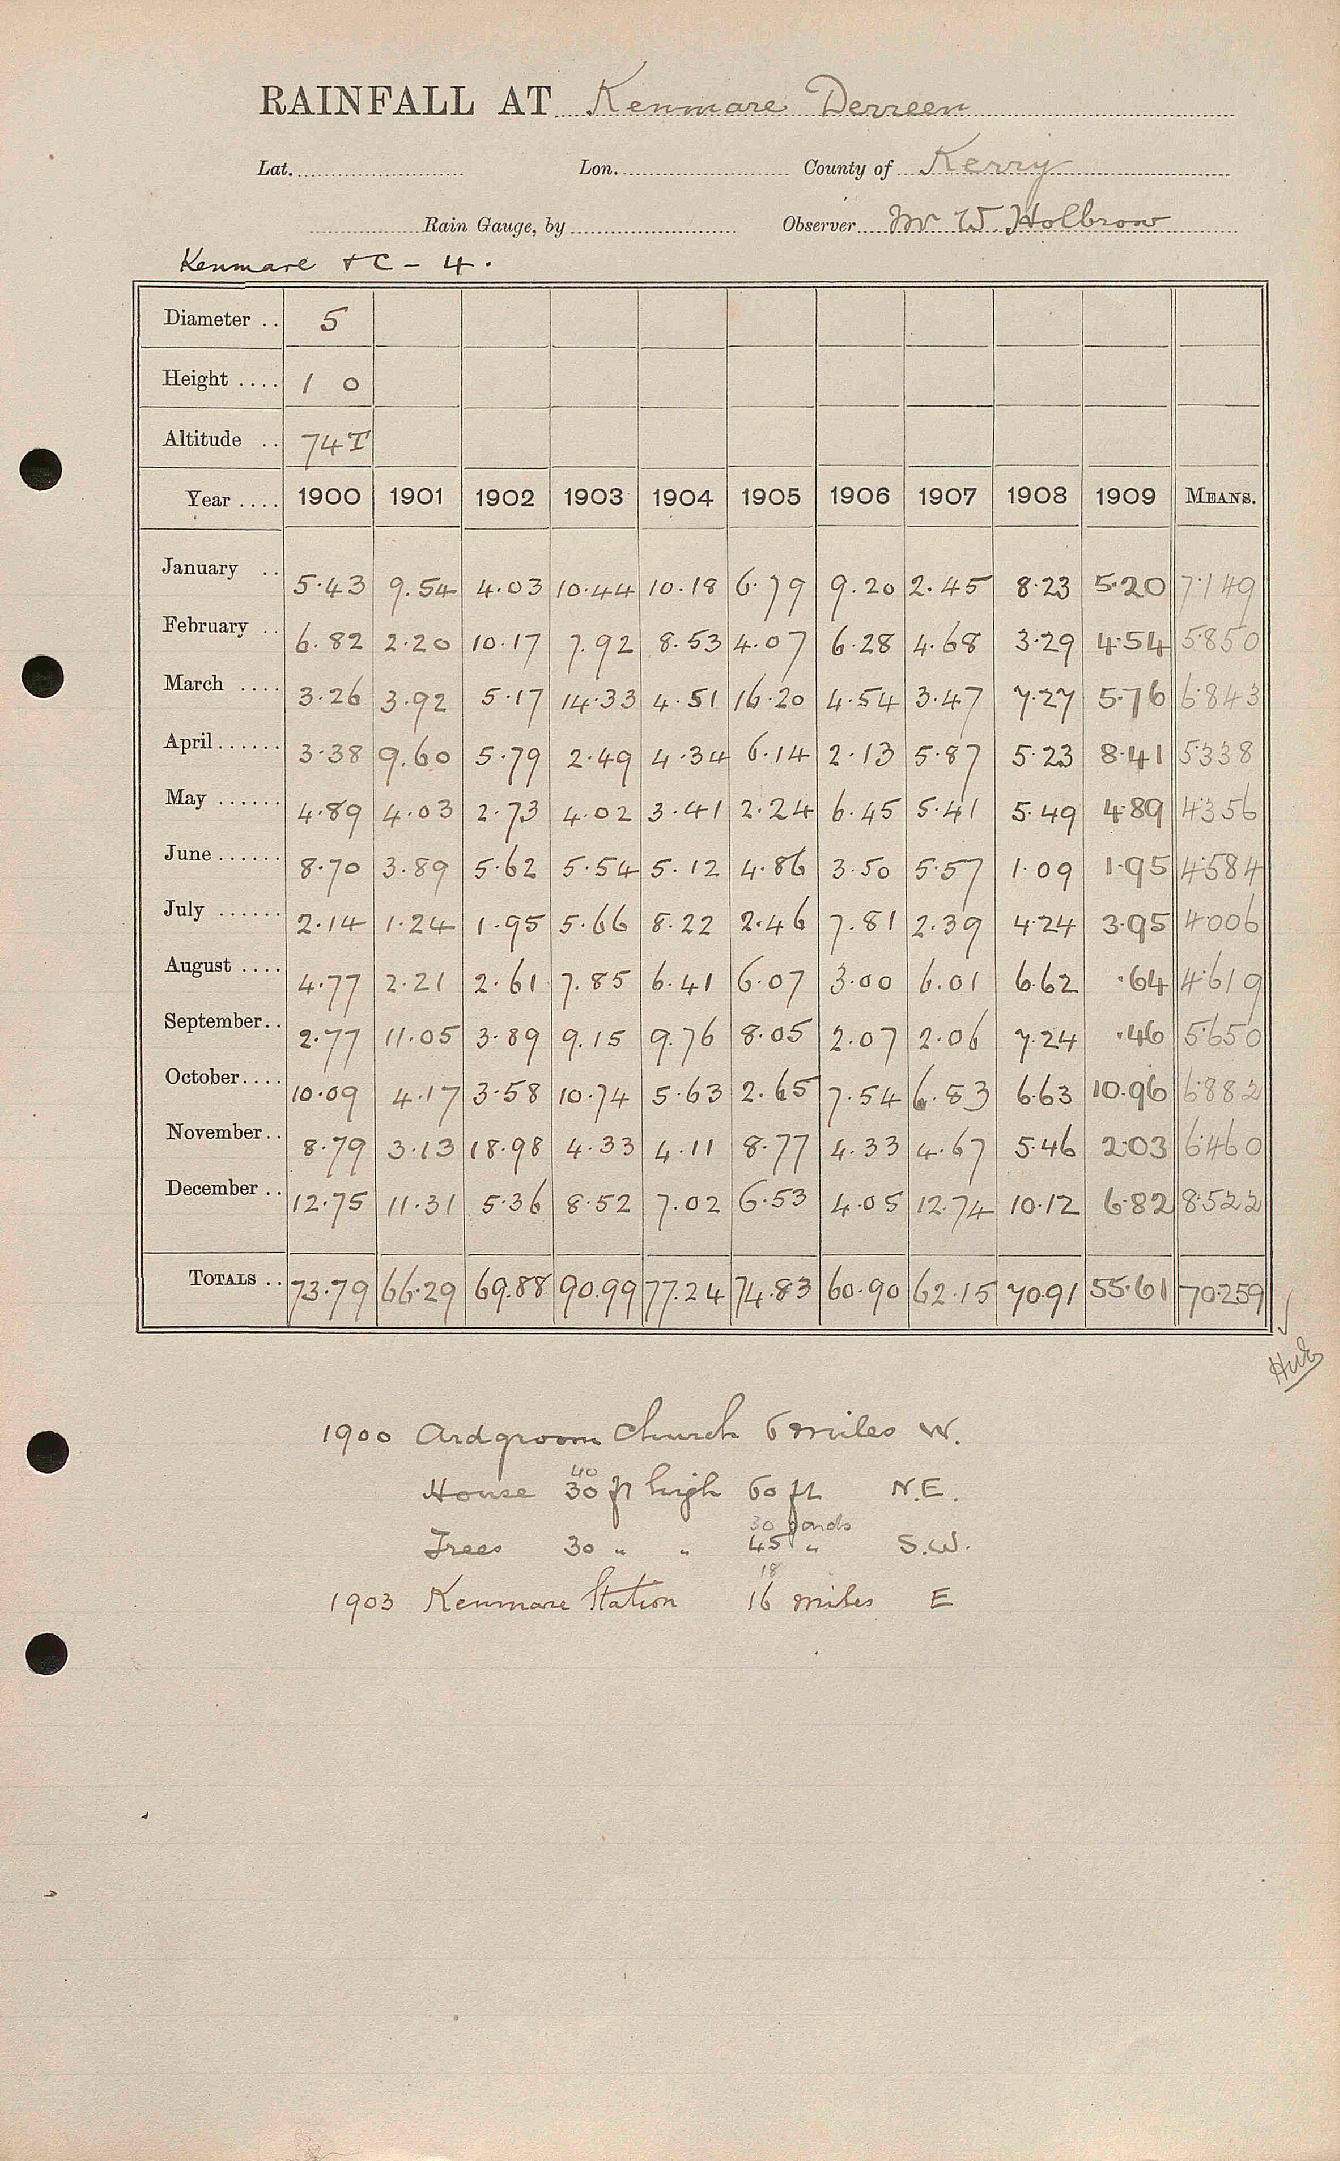 RAINFALL AT Kenmare Derreen
Lat. Lon. County of Kerry
Rain Gauge, by Observer Mr W Holbrow
Kenmare + C - 4.
Diameter .. 5
Height .... 1 0
Altitude .. 74 T
Year .... 1900 1901 1902 1903 1904 1905 1906 1907 1908 1909 MEANS.
January .. 5.43 9.54 4.03 10.44 10.18 6.79 9.20 2.45 8.23 5.20 7.149
February .. 6.82 2.20 10.17 7.92 8.53 4.07 6.28 4.68 3.29 4.54 5.850
March .... 3.26 3.92 5.17 14.33 4.51 16.20 4.54 3.47 7.27 5.76 6.843
April...... 3.38 9.60 5.79 2.49 4.34 6.14 2.13 5.87 5.23 8.41 5.338
May ...... 4.89 4.03 2.73 4.02 3.41 2.24 6.45 5.41 5.49 4.89 4.356
June ...... 8.70 3.89 5.62 5.54 5.12 4.86 3.50 5.57 1.09 1.95 4.584
July ...... 2.14 1.24 1.95 5.66 8.22 2.46 7.81 2.39 4.24 3.95 4.006
August .... 4.77 2.21 2.61 7.85 6.41 6.07 3.00 6.01 6.62 .64 4.619
September.. 2.77 11.05 3.89 9.15 9.76 8.05 2.07 2.06 7.24 .46 5.650
October.... 10.09 4.17 3.58 10.74 5.63 2.65 7.54 6.83 6.63 10.96 6.882
November.. 8.79 3.13 18.98 4.33 4.11 8.77 4.33 4.67 5.46 2.03 6.460
December .. 12.75 11.31 5.36 8.52 7.02 6.53 4.05 12.74 10.12 6.82 8.522
TOTALS .. 73.79 66.29 69.88 90.99 77.24 74.83 60.90 62.15 70.91 55.61 70.259
1900 Ardgroom Church 6 miles W.
40
House 30 ft high 60 ft N.E.
30 yards
Trees 30 " " 45 " S.W.
18
1903 Kenmare Station 16 miles E